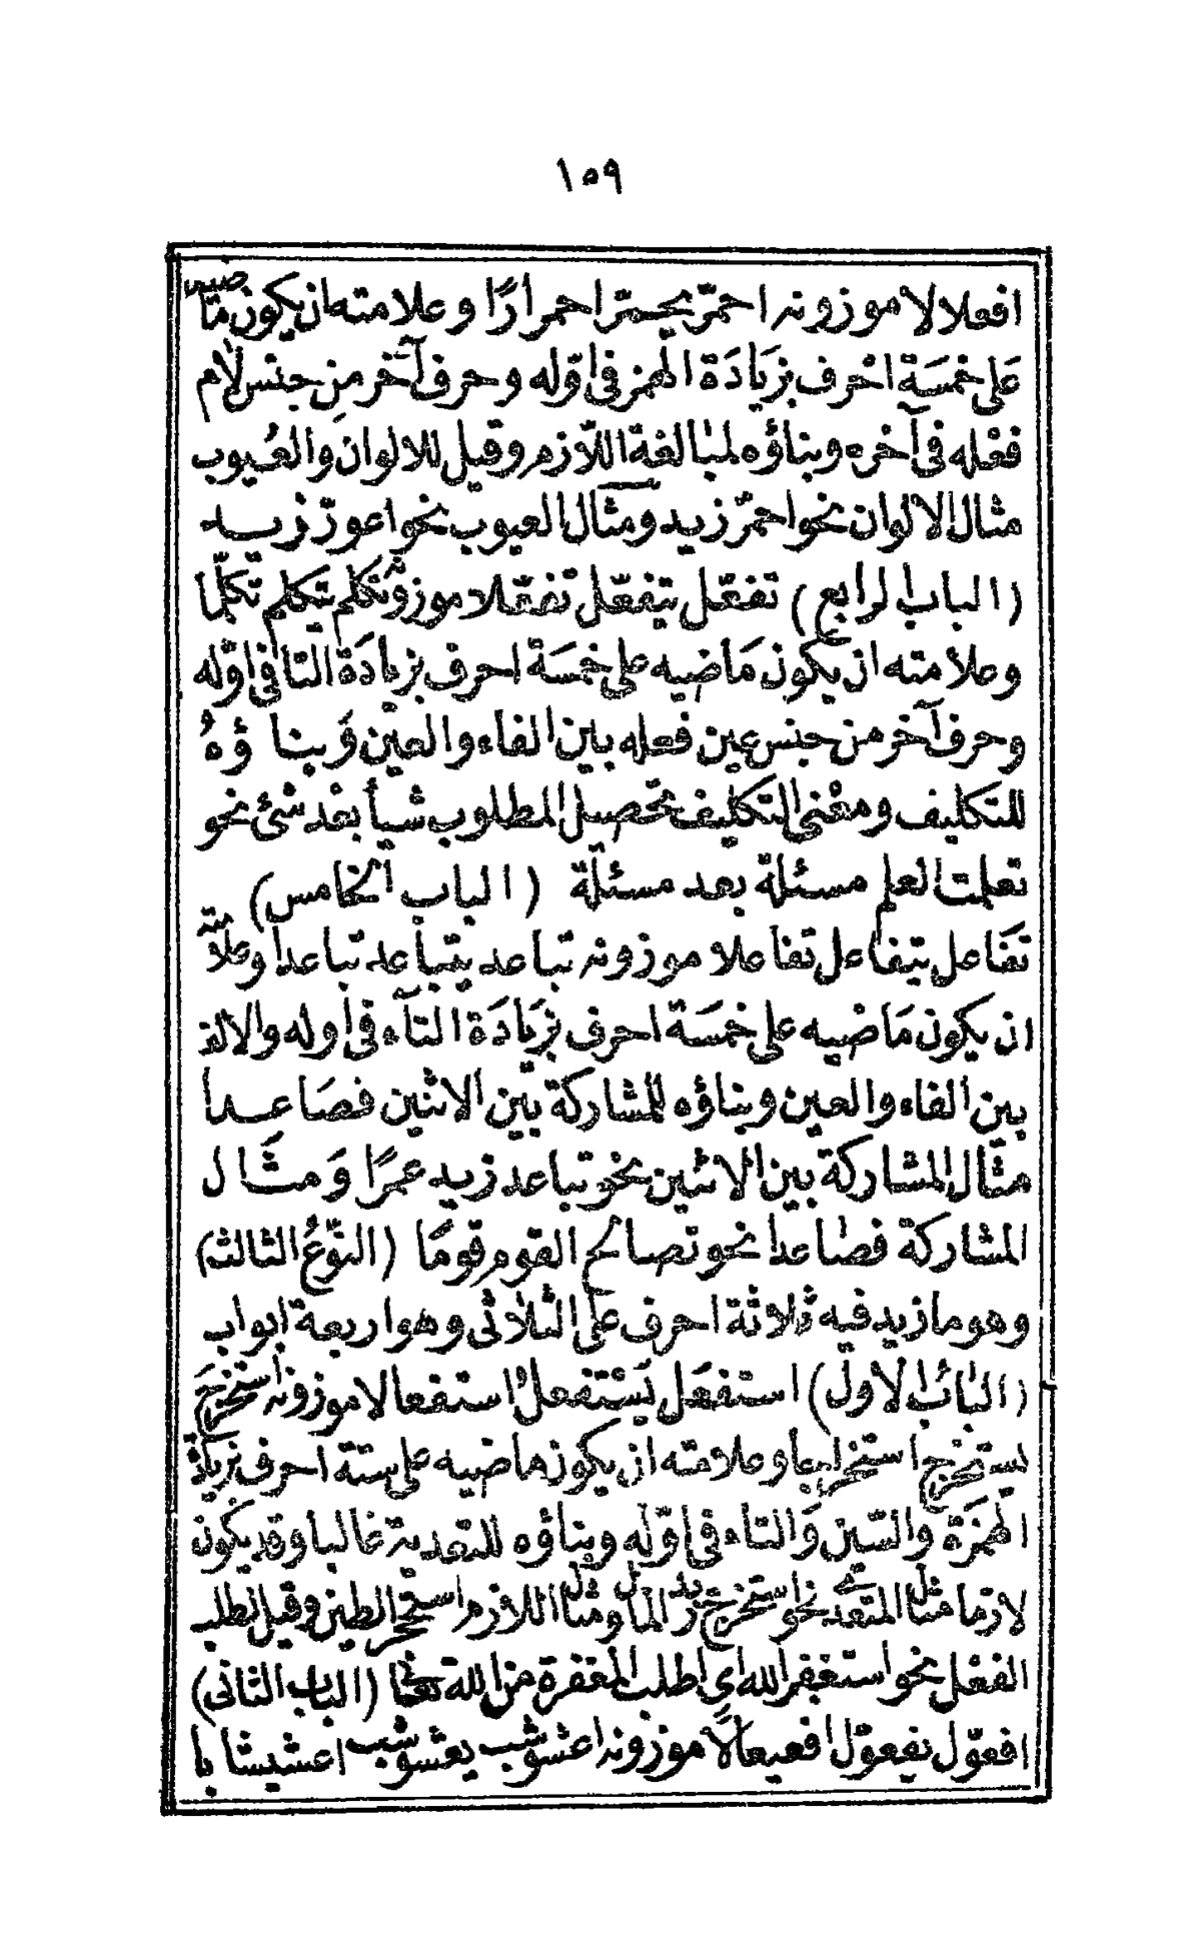 ١٥٩
افعلالا موزونه احمرّ يحمرّ احمرارًا وعلامته ان يكون ماضيه
عَلى خمسَة احْرف بزيَادَة الهمز فى اوّله وحرف آخر مِن جنس لام
فعْله فى آخره وبناؤه لمبالغة اللّازم وقيل للالوان والعُيوب
مثال الالوان نحو احمرّ زيد ومثال العيوب نحو اعورّ زيد
(الباب الرابع) تفعّل يتفعّل تفعّلا موزونه تكلّم يتكلم تكلّما
وعلامته ان يكون مَاضيه على خمسَة احرف بزيادَة التا فى اوّله
وحرف آخر من جنس عين فعله بين الفاء والعين وَبناؤهُ
للتكليف ومعْنى التكليف تحصيل المطلوب شيأ بعْد شئ نحو
تعلمت العلم مسئلة بعد مسئلة (الباب الخامس)
تَفَاعل يتفاعل تفاعلا موزونه تباعد يتباعد تباعدا وعلامته
ان يكون مَاضيه على خمسَة احرف بزيَادَة التآء فى اوله والالف
بين الفاء والعين وبناؤه للمشاركة بين الاثنين فصَاعدا
مثَال المشاركة بين الاثنين نحو تباعد زيد عمرًا وَمثَال
المشاركة فصاعدا نحو تصالح القوم قومًا (النّوعُ الثالث)
وهو ما زيد فيه ثلاثة احرف على الثلاثى وهو اربعة ابواب
(البَابُ الاول) استفعَل يَسْتفعلُ استفعالا موزونه استخرجَ
يستخرج استخراجا وعلامته ان يكون ماضيه على ستة احرف بزيادة
الهمزَة والسّين وَالتاء فى اوّله وبناؤه للتعدية غالبا وقد يكون
لازما مثال المتعدى نحو استخرج زيد المال ومثال اللازم استحجر الطين وقيل لطلب
الفعْل نحو استغفر الله اى اطلب المغفرة من الله تعالى (الباب الثانى)
افعوّل يفعوّل افعيعالًا موزونه اعشوشب يعشوشب اعشيشابا